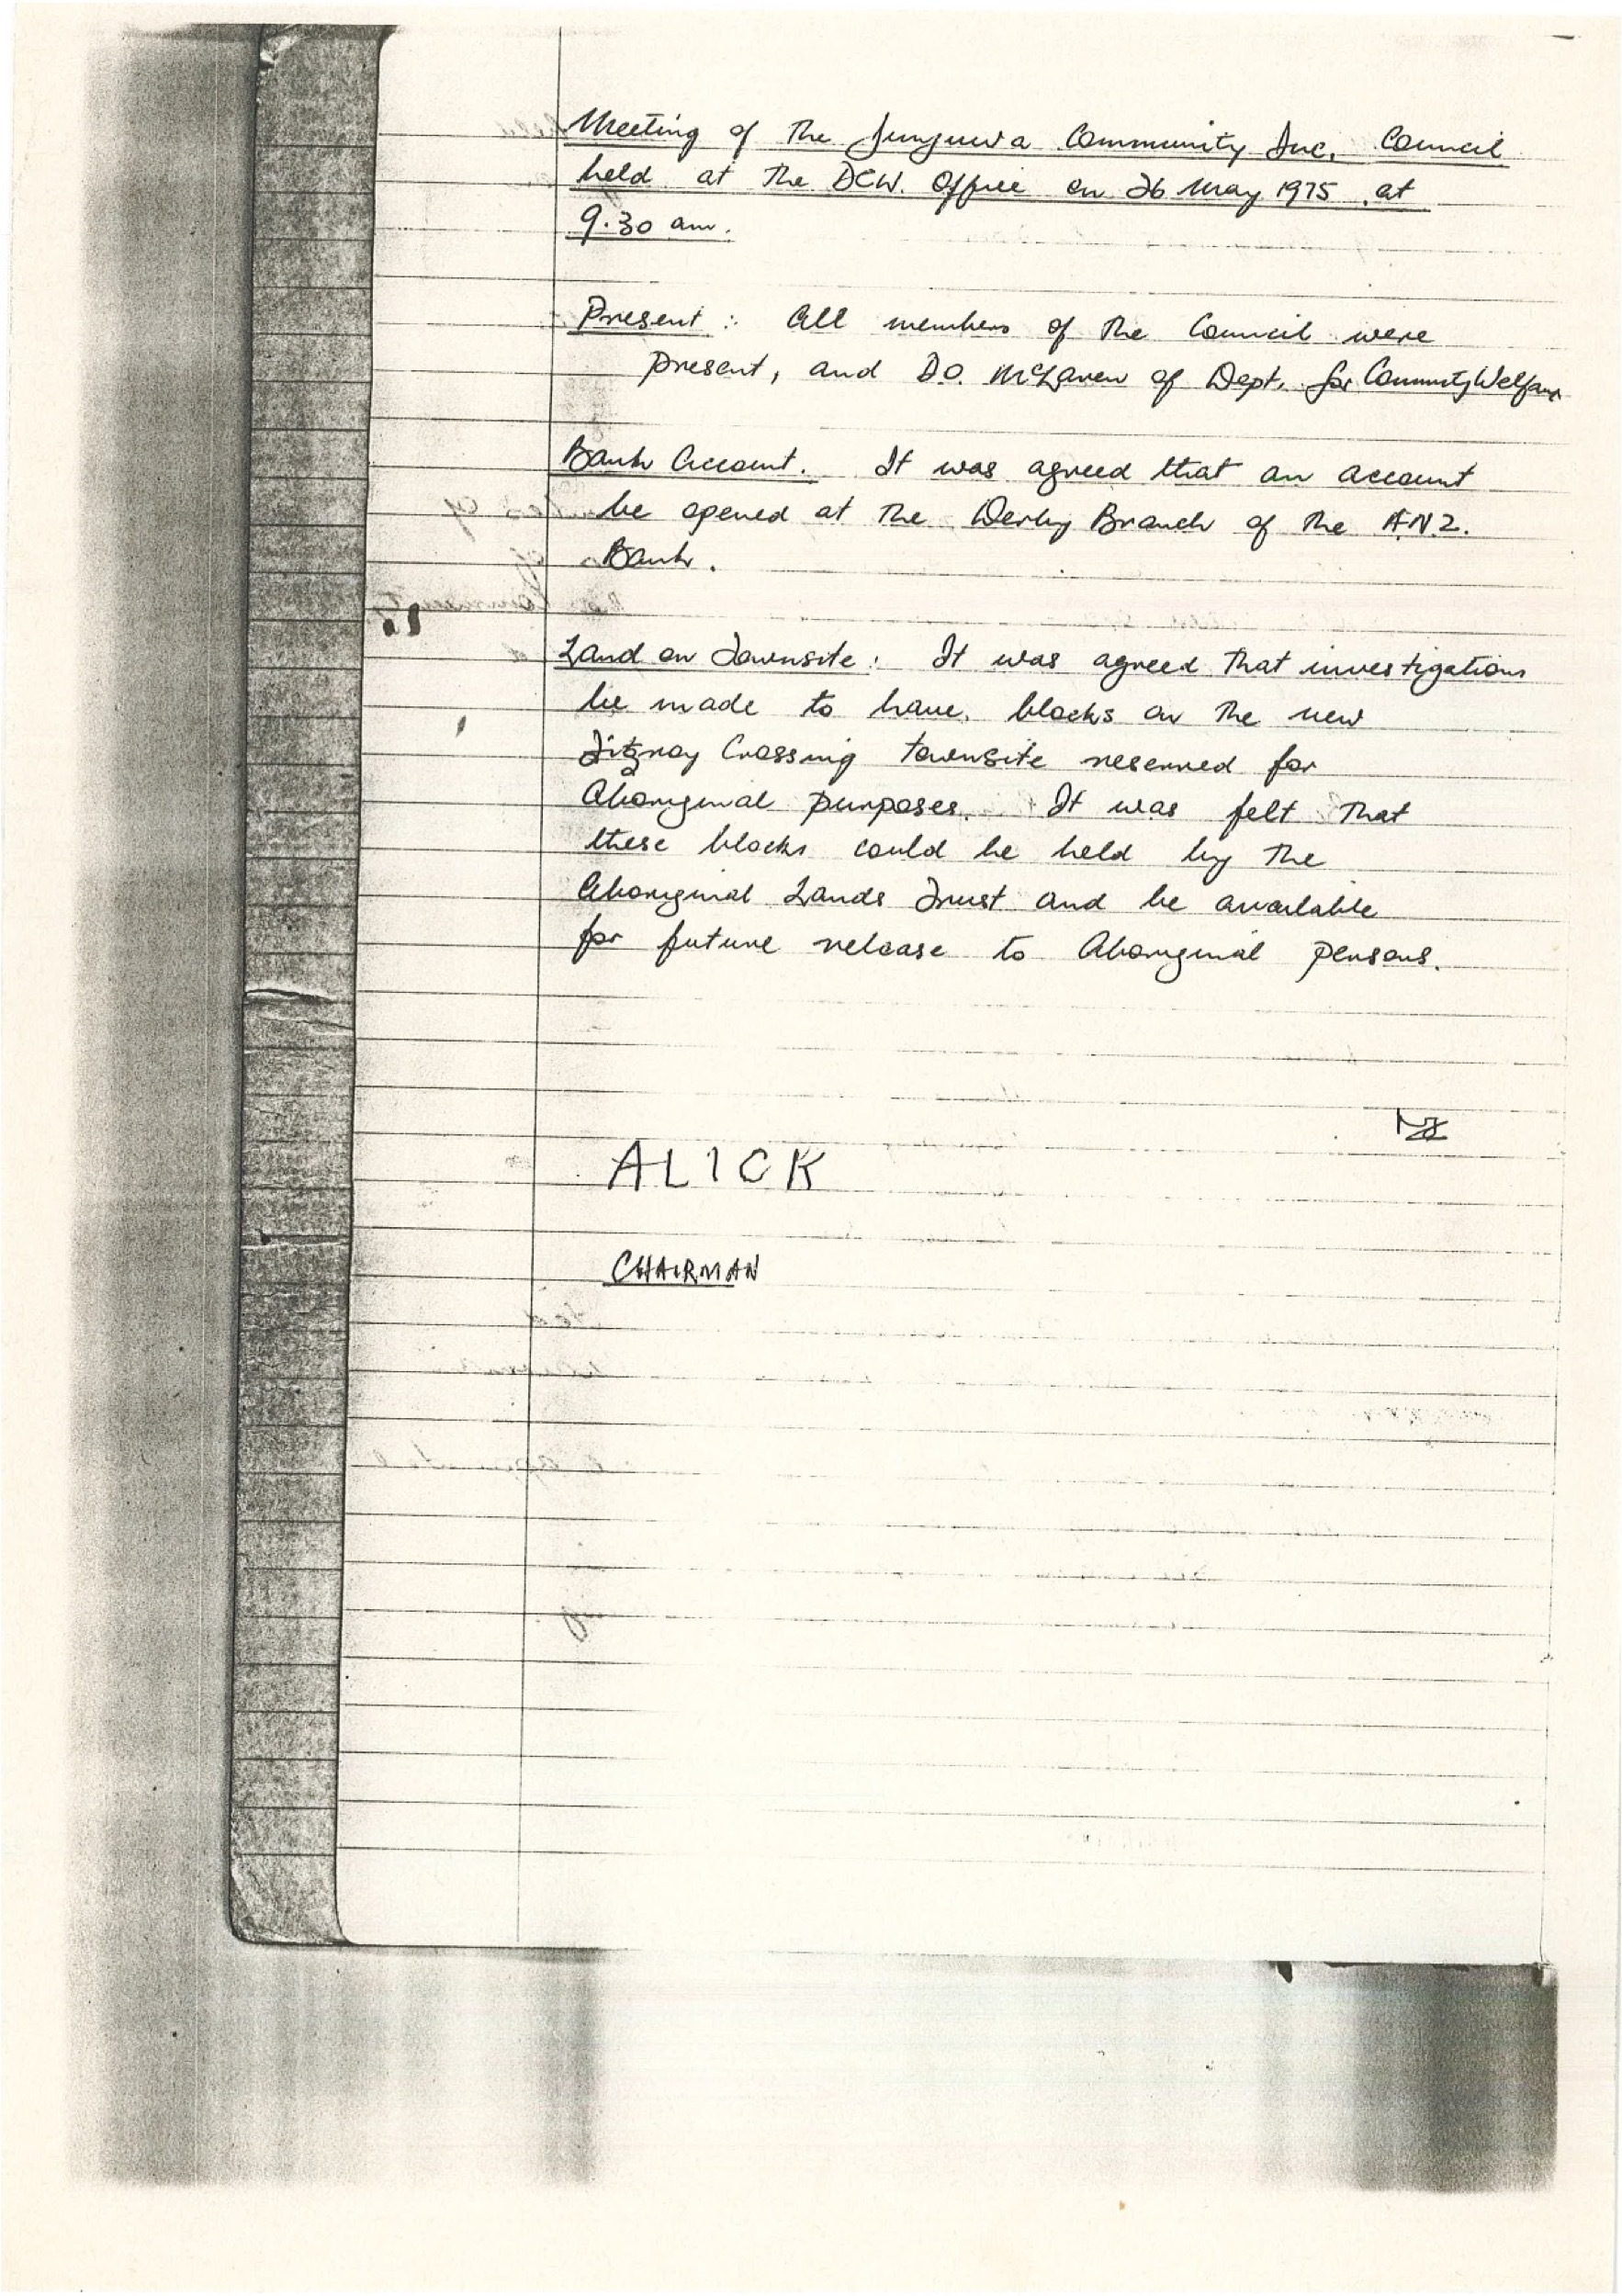 Meeting of The Junjuwa Community Inc. Council
held at The DCW. Office on 26 May 1975 at
9.30 am.
Present : All members of The Council were
present, and D.O. McLaren of Dept. for Community Welfare
Bank Account. It was agreed that an account
be opened at The Derby Branch of The A.N.Z.
Bank.
Land on Townsite : It was agreed That investigations
be made to have blocks on The new
Fitzroy Crossing townsite reserved for
Aboriginal purposes. It was felt That
these blocks could be held by The
Aboriginal Lands Trust and be available
for future release to Aboriginal persons.
ALICK
CHAIRMAN